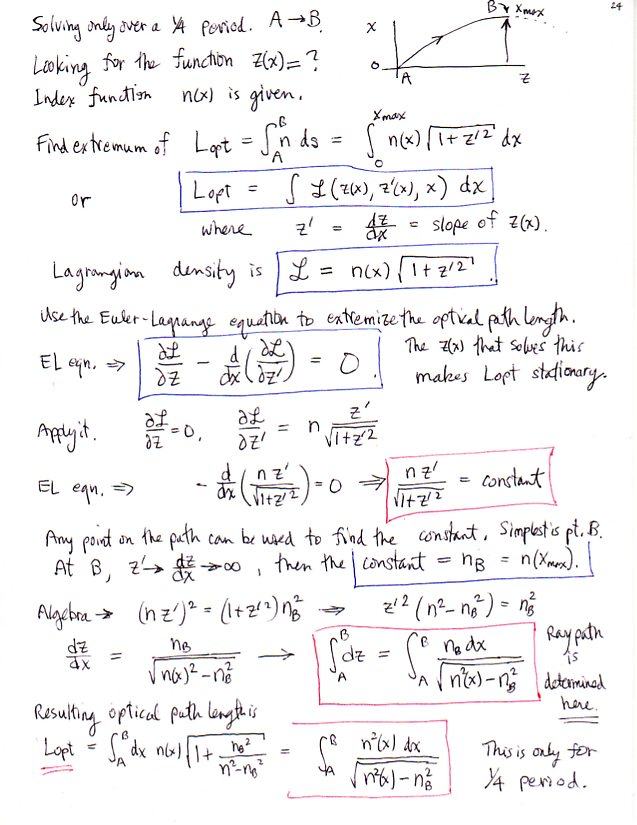 24
Solving only over a 1/4 period. A → B.
B x_max
x
0
A
z
Looking for the function z(x) = ?
Index function n(x) is given.
Find extremum of L_opt = ∫_A^B n ds = ∫_0^{x_max} n(x) √(1 + z'²) dx
or L_opt = ∫ ℒ(z(x), z'(x), x) dx
where z' = dz/dx = slope of z(x).
Lagrangian density is ℒ = n(x) √(1 + z'²).
Use the Euler-Lagrange equation to extremize the optical path length.
EL eqn. ⇒ ∂ℒ/∂z − d/dx (∂ℒ/∂z') = 0.
The z(x) that solves this
makes L_opt stationary.
Apply it. ∂ℒ/∂z = 0, ∂ℒ/∂z' = n z'/√(1+z'²)
EL eqn. ⇒ − d/dx (n z'/√(1+z'²)) = 0 ⇒ n z'/√(1+z'²) = constant
Any point on the path can be used to find the constant. Simplest is pt. B.
At B, z' → dz/dx → ∞, then the constant = n_B = n(x_max).
Algebra → (n z')² = (1+z'²) n_B² ⇒ z'² (n² − n_B²) = n_B²
dz/dx = n_B/√(n(x)² − n_B²) → ∫_A^B dz = ∫_A^B n_B dx/√(n²(x) − n_B²)
Ray path
is
determined
here.
Resulting optical path length is
L_opt = ∫_A^B dx n(x) √(1 + n_B²/(n² − n_B²)) = ∫_A^B n²(x) dx/√(n²(x) − n_B²)
This is only for
1/4 period.